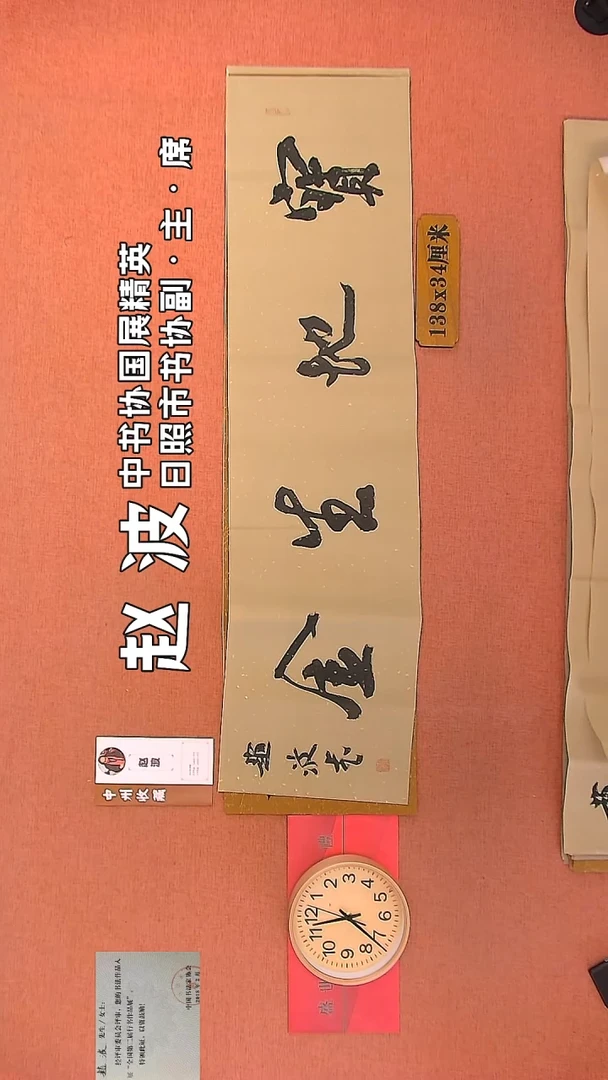 赵波
中书协国展精英
日照市书协副·主·席
寶地生金
趙波书
138x34厘米
赵波
中州收藏
12 1 2 3 4 5 6 7 8 9 10 11
赵波 先生/女士:
经评审委员会评审,您的书法作品入
展“全国第二届行书作品展”,
特颁此证,以资鼓励!
中国书法家协会